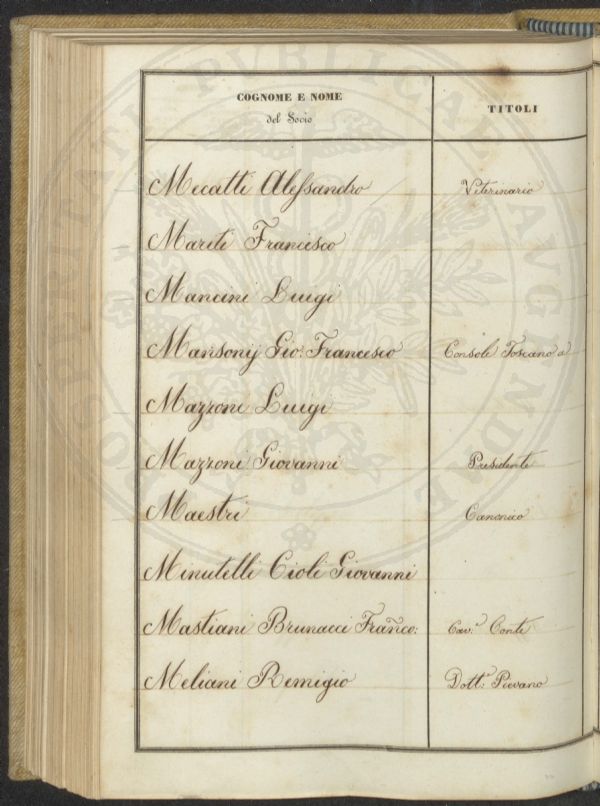 COGNOME E NOME
del Socio
TITOLI
Mecatti Alessandro Veterinario
Mariti Francesco
Mancini Luigi
Mansony Gio: Francesco Console Toscano a
Mazzoni Luigi
Mazzoni Giovanni Presidente
Maestri Canonico
Minutelli Cioli Giovanni
Mastiani Brunacci Franco: Cav.e Conte
Meliani Remigio Dott.e Pievano